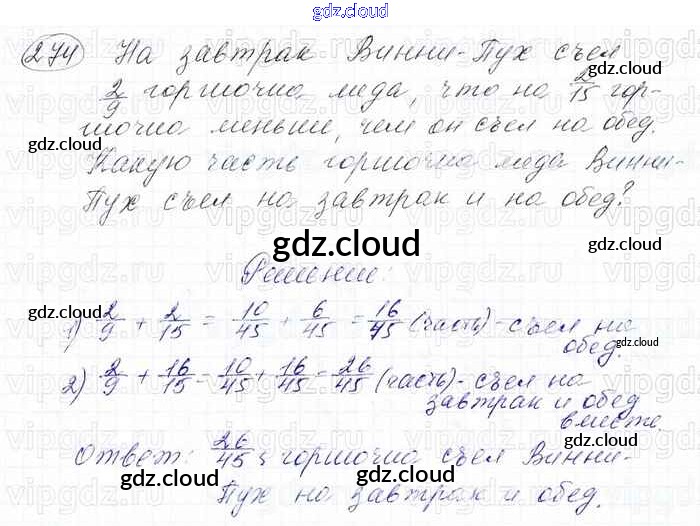 gdz.cloud
274 На завтрак Винни-Пух съел
gdz.cloud gdz.cloud
2/9 горшочка меда, что на 2/15 гор-
шочка меньше, чем он съел на обед.
gdz.cloud gdz.cloud
Какую часть горшочка меда Винни-
Пух съел на завтрак и на обед?
gdz.cloud
Решение:
gdz.cloud gdz.cloud
1) 2/9 + 2/15 = 10/45 + 6/45 = 16/45 (часть) - съел на
обед.
gdz.cloud
2) 2/9 + 16/15 = 10/45 + 16/45 = 26/45 (часть) - съел на
завтрак и обед
вместе.
gdz.cloud
Ответ: 26/45 горшочка съел Винни-
gdz.cloud gdz.cloud
Пух на завтрак и обед.
gdz.cloud